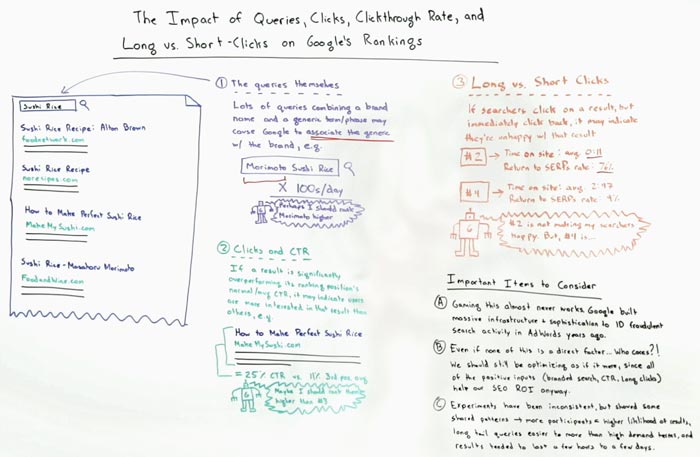 The Impact of Queries, Clicks, Clickthrough Rate, and
Long vs. Short-Clicks on Google's Rankings
Sushi Rice
Sushi Rice Recipe: Alton Brown
foodnetwork.com
Sushi Rice Recipe
norecipes.com
How to Make Perfect Sushi Rice
MakeMySushi.com
Sushi Rice - Masaharu Morimoto
FoodandWine.com
1 The queries themselves
Lots of queries combining a brand
name and a generic term/phrase may
cause Google to associate the generic
w/ the brand, e.g.
Morimoto Sushi Rice
X 100s/day
Perhaps I should rank
Morimoto higher
G
2 Clicks and CTR
If a result is significantly
overperforming its ranking position's
normal/avg CTR, it may indicate users
are more interested in that result than
others, e.g.
How to Make Perfect Sushi Rice
MakeMySushi.com
= 25% CTR vs. 11% 3rd pos. avg
Maybe I should rank them
higher than #3
G
3 Long vs. Short Clicks
If searchers click on a result, but
immediately click back, it may indicate
they're unhappy w/ that result
#2 → Time on site: avg. 0:11
Return to SERPs rate: 76%
#4 → Time on site: avg. 2:47
Return to SERPs rate: 9%
#2 is not making my searchers
happy. But, #4 is...
G
Important Items to Consider
A Gaming this almost never works. Google built
massive infrastructure + sophistication to ID fraudulent
search activity in AdWords years ago.
B Even if none of this is a direct factor... Who cares?!
We should still be optimizing as if it were, since all
of the positive inputs (branded search, CTR, long clicks)
help our SEO ROI anyway.
C Experiments have been inconsistent, but showed some
shared patterns → more participants = higher liklihood of results,
long tail queries easier to move than high demand terms, and
results tended to last a few hours to a few days.